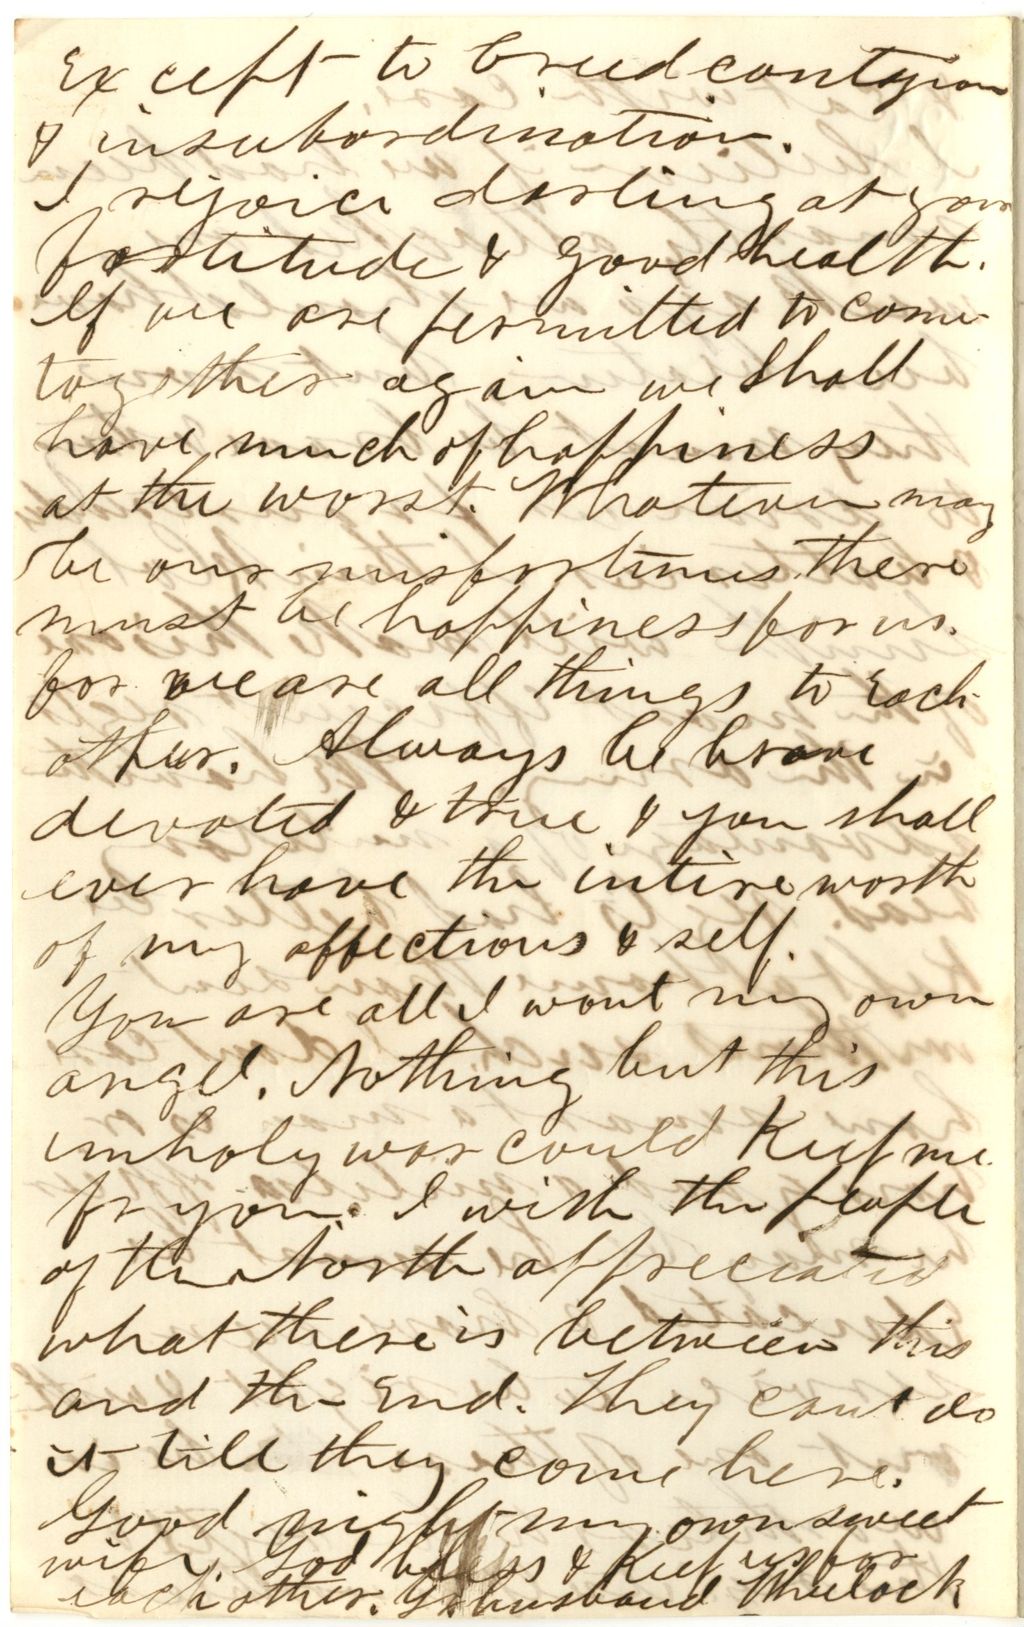 Except to breed contagion
& insubordination.
I rejoice darling at your
fortitude & good health.
If we are permitted to come
together again we shall
have much of happiness
at the worst. Whatever may
be our misfortunes there
must be happiness for us.
for we are all things to each
other. Always be brave
devoted & true & you shall
ever have the intire worth
of my affections & self.
You are all I want my own
angel. Nothing but this
unholy war could Keep me
fr you. I wish the people
of the North appreciated
what there is between this
and the End. They cant do
it till they come here.
Good night my own sweet
wife. God bless & Keep us for
each other. Yr husband Wheelock